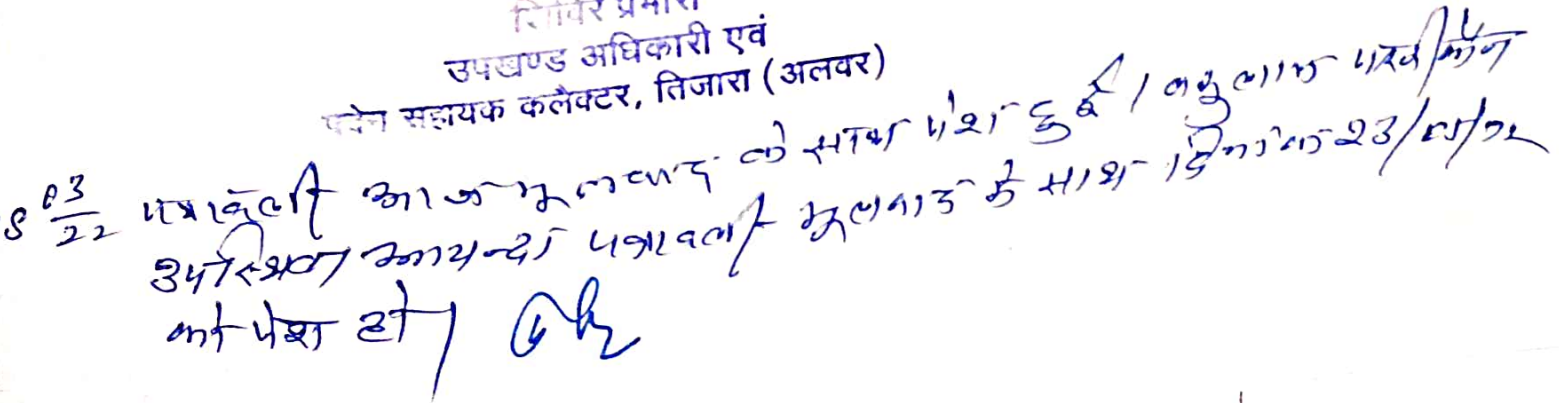 शिविर प्रभारी
उपखण्ड अधिकारी एवं
पदेन सहायक कलैक्टर, तिजारा (अलवर)
8 03/22 पत्रावली आज मूलवाद के साथ पेश हुई। वकुलाय पक्षकारान
उपस्थित आयन्दा पत्रावली मूलवाद के साथ दिनांक 23/05/22
को पेश हो।